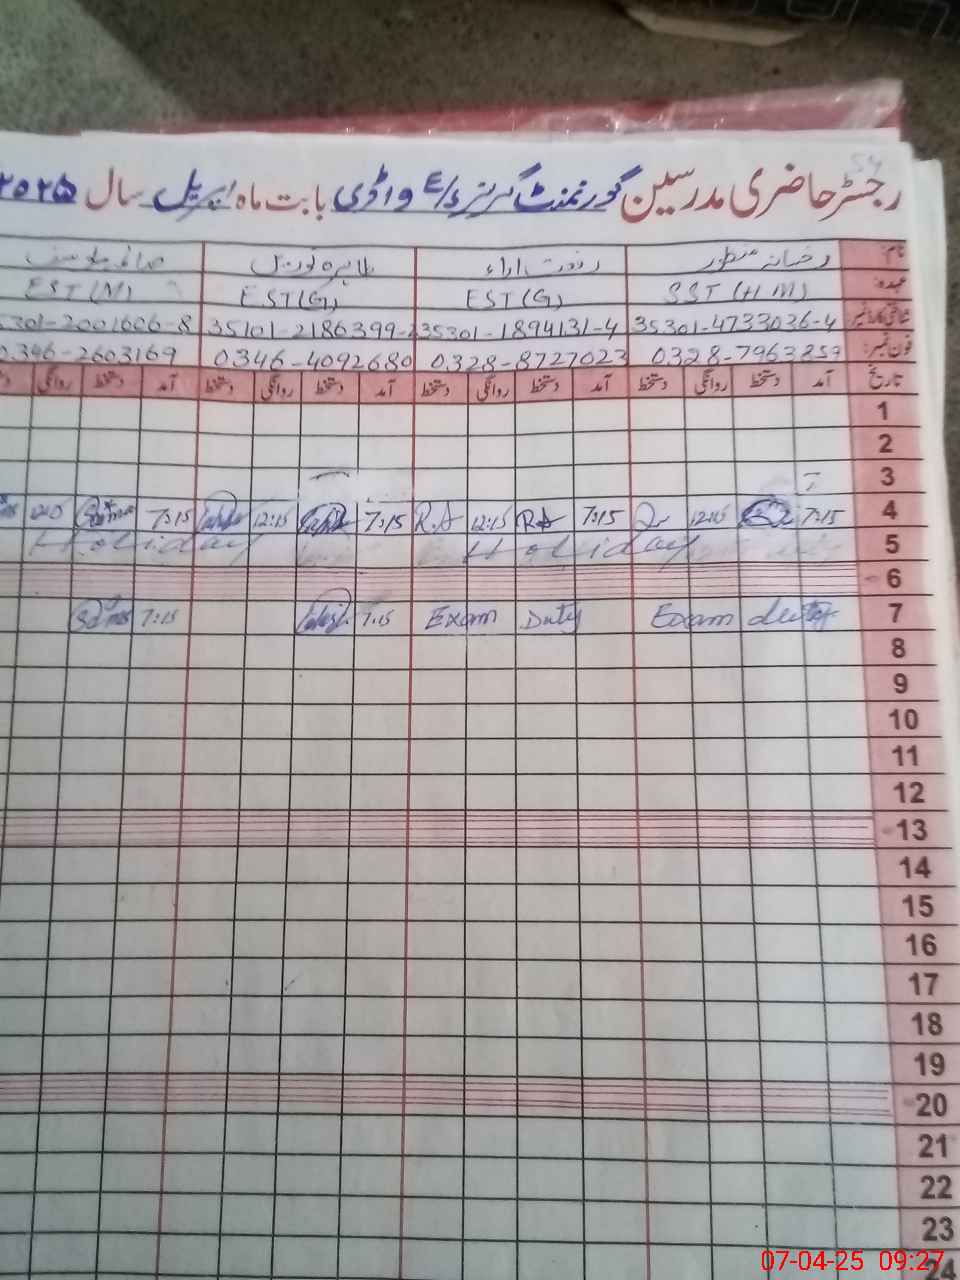 رجسٹر حاضری مدرسین گورنمنٹ گرلز e/s واڈی بابت ماہ اپریل سال ۲۰۲۵
نام: رخسانہ منظور رفعت اراء طاہرہ نورین صائمہ یوسف
عہدہ: SST (H.M) EST (G) EST (G) EST (M)
شناختی کارڈ نمبر 35301-4733036-4 35301-1894131-4 35101-2186399- 5301-2001606-8
فون نمبر: 0328-7963859 0328-8727023 0346-4092680 0346-2603169
تاریخ آمد دستخط روانگی دستخط آمد دستخط روانگی دستخط آمد دستخط روانگی دستخط آمد دستخط روانگی
1
2
3
4 7:15 12:15 7:15 R.A 12:15 R.A 7:15 12:15 7:15
5 Holiday Holiday
6
7 Exam duty Exam Duty 7:15 7:15
8
9
10
11
12
13
14
15
16
17
18
19
20
21
22
23
24
07-04-25 09:27